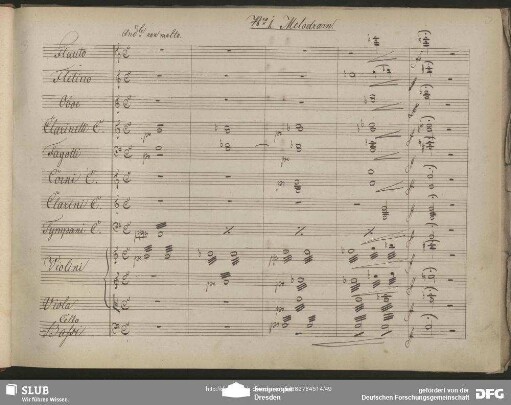 No 1. Melodram.
And.te non molto.
Flauto
Flttino
Oboe
Clarinetti C.
Fagotti
Corni C.
Clarini C.
Tympani C.
Violini
Viola
Cello
Bassi
SLUB
Wir führen Wissen.
Dresden
gefördert von der
Deutschen Forschungsgemeinschaft
DFG